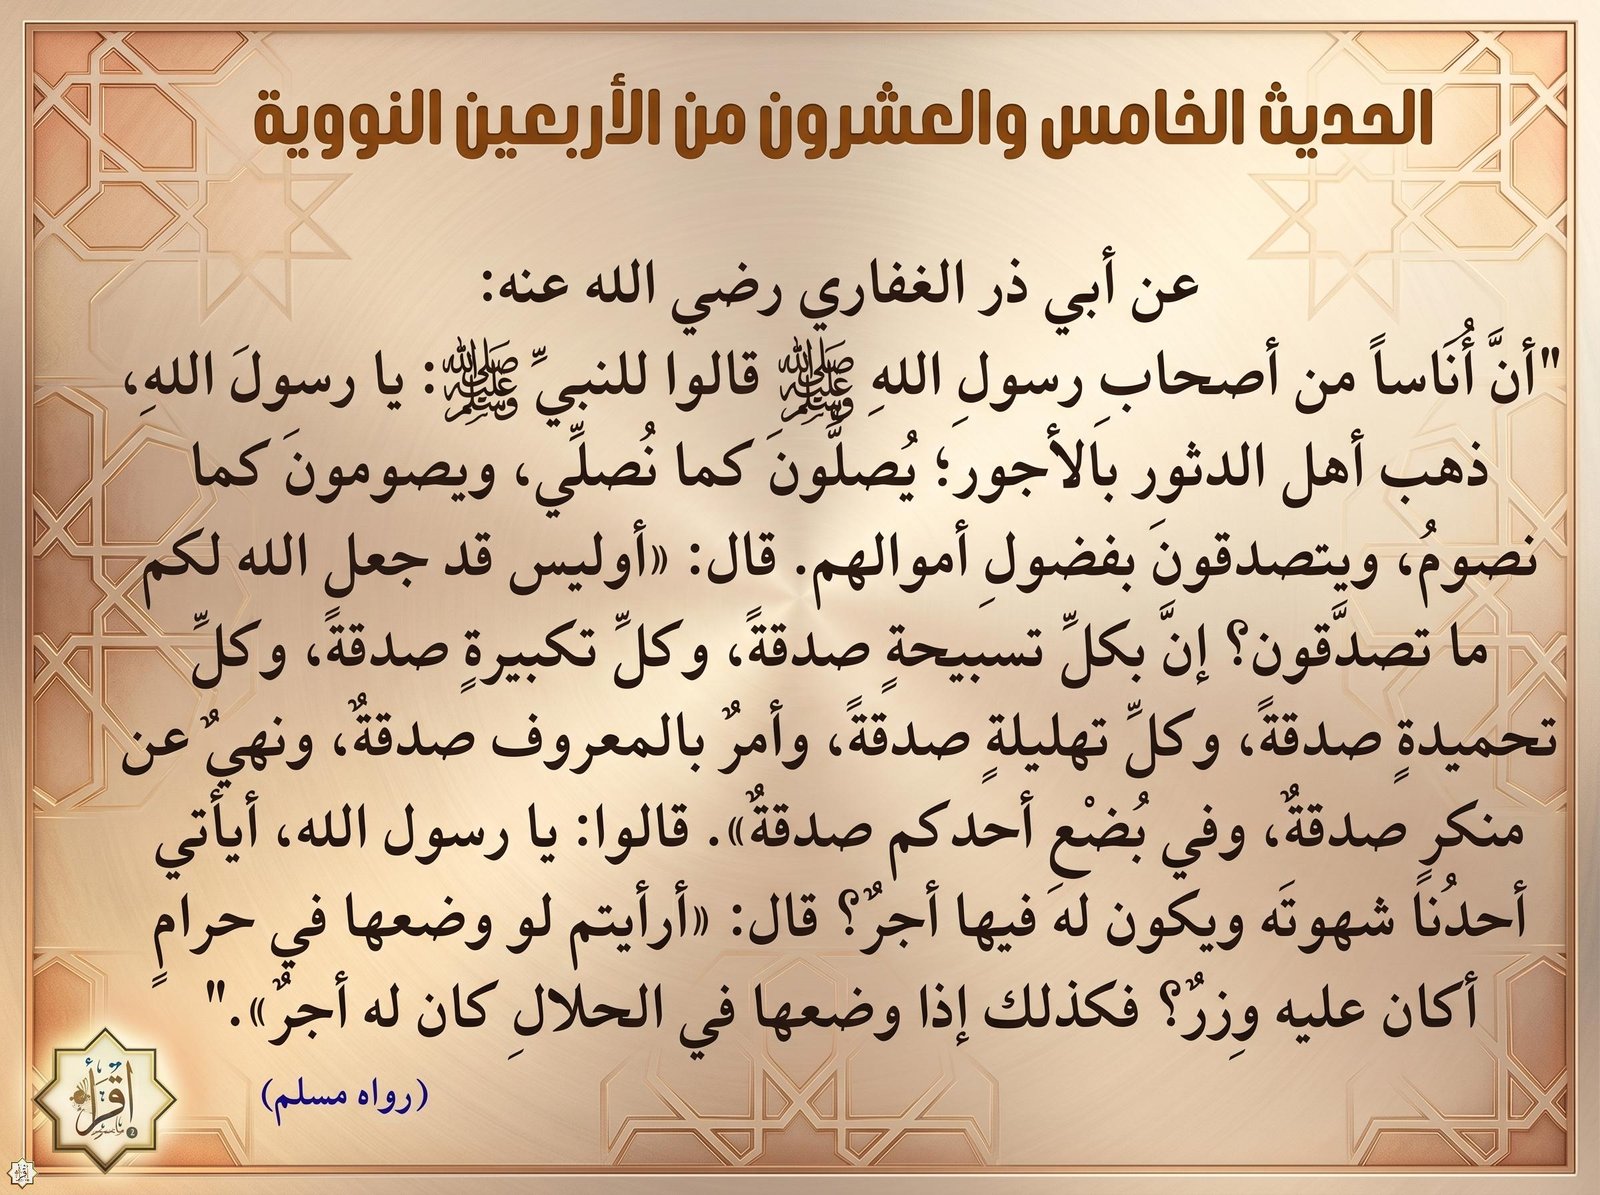 الحديث الخامس والعشرون من الأربعين النووية
عن أبي ذر الغفاري رضي الله عنه:
"أنَّ أُنَاساً من أصحابِ رسولِ اللهِ ﷺ قالوا للنبيِّ ﷺ: يا رسولَ اللهِ،
ذهب أهل الدثور بالأجور؛ يُصلَّونَ كما نُصلِّي، ويصومونَ كما
نصومُ، ويتصدقونَ بفضولِ أموالهم. قال: «أوليس قد جعل الله لكم
ما تصدَّقون؟ إنَّ بكلِّ تسبيحةٍ صدقةً، وكلِّ تكبيرةٍ صدقةً، وكلِّ
تحميدةٍ صدقةً، وكلِّ تهليلةٍ صدقةً، وأمرٌ بالمعروف صدقةٌ، ونهيٌ عن
منكرٍ صدقةٌ، وفي بُضْعِ أحدكم صدقةٌ». قالوا: يا رسول الله، أيأتي
أحدُنا شهوتَه ويكون له فيها أجرٌ؟ قال: «أرأيتم لو وضعها في حرامٍ
أكان عليه وِزرٌ؟ فكذلك إذا وضعها في الحلالِ كان له أجرٌ»."
(رواه مسلم)
اقرأ